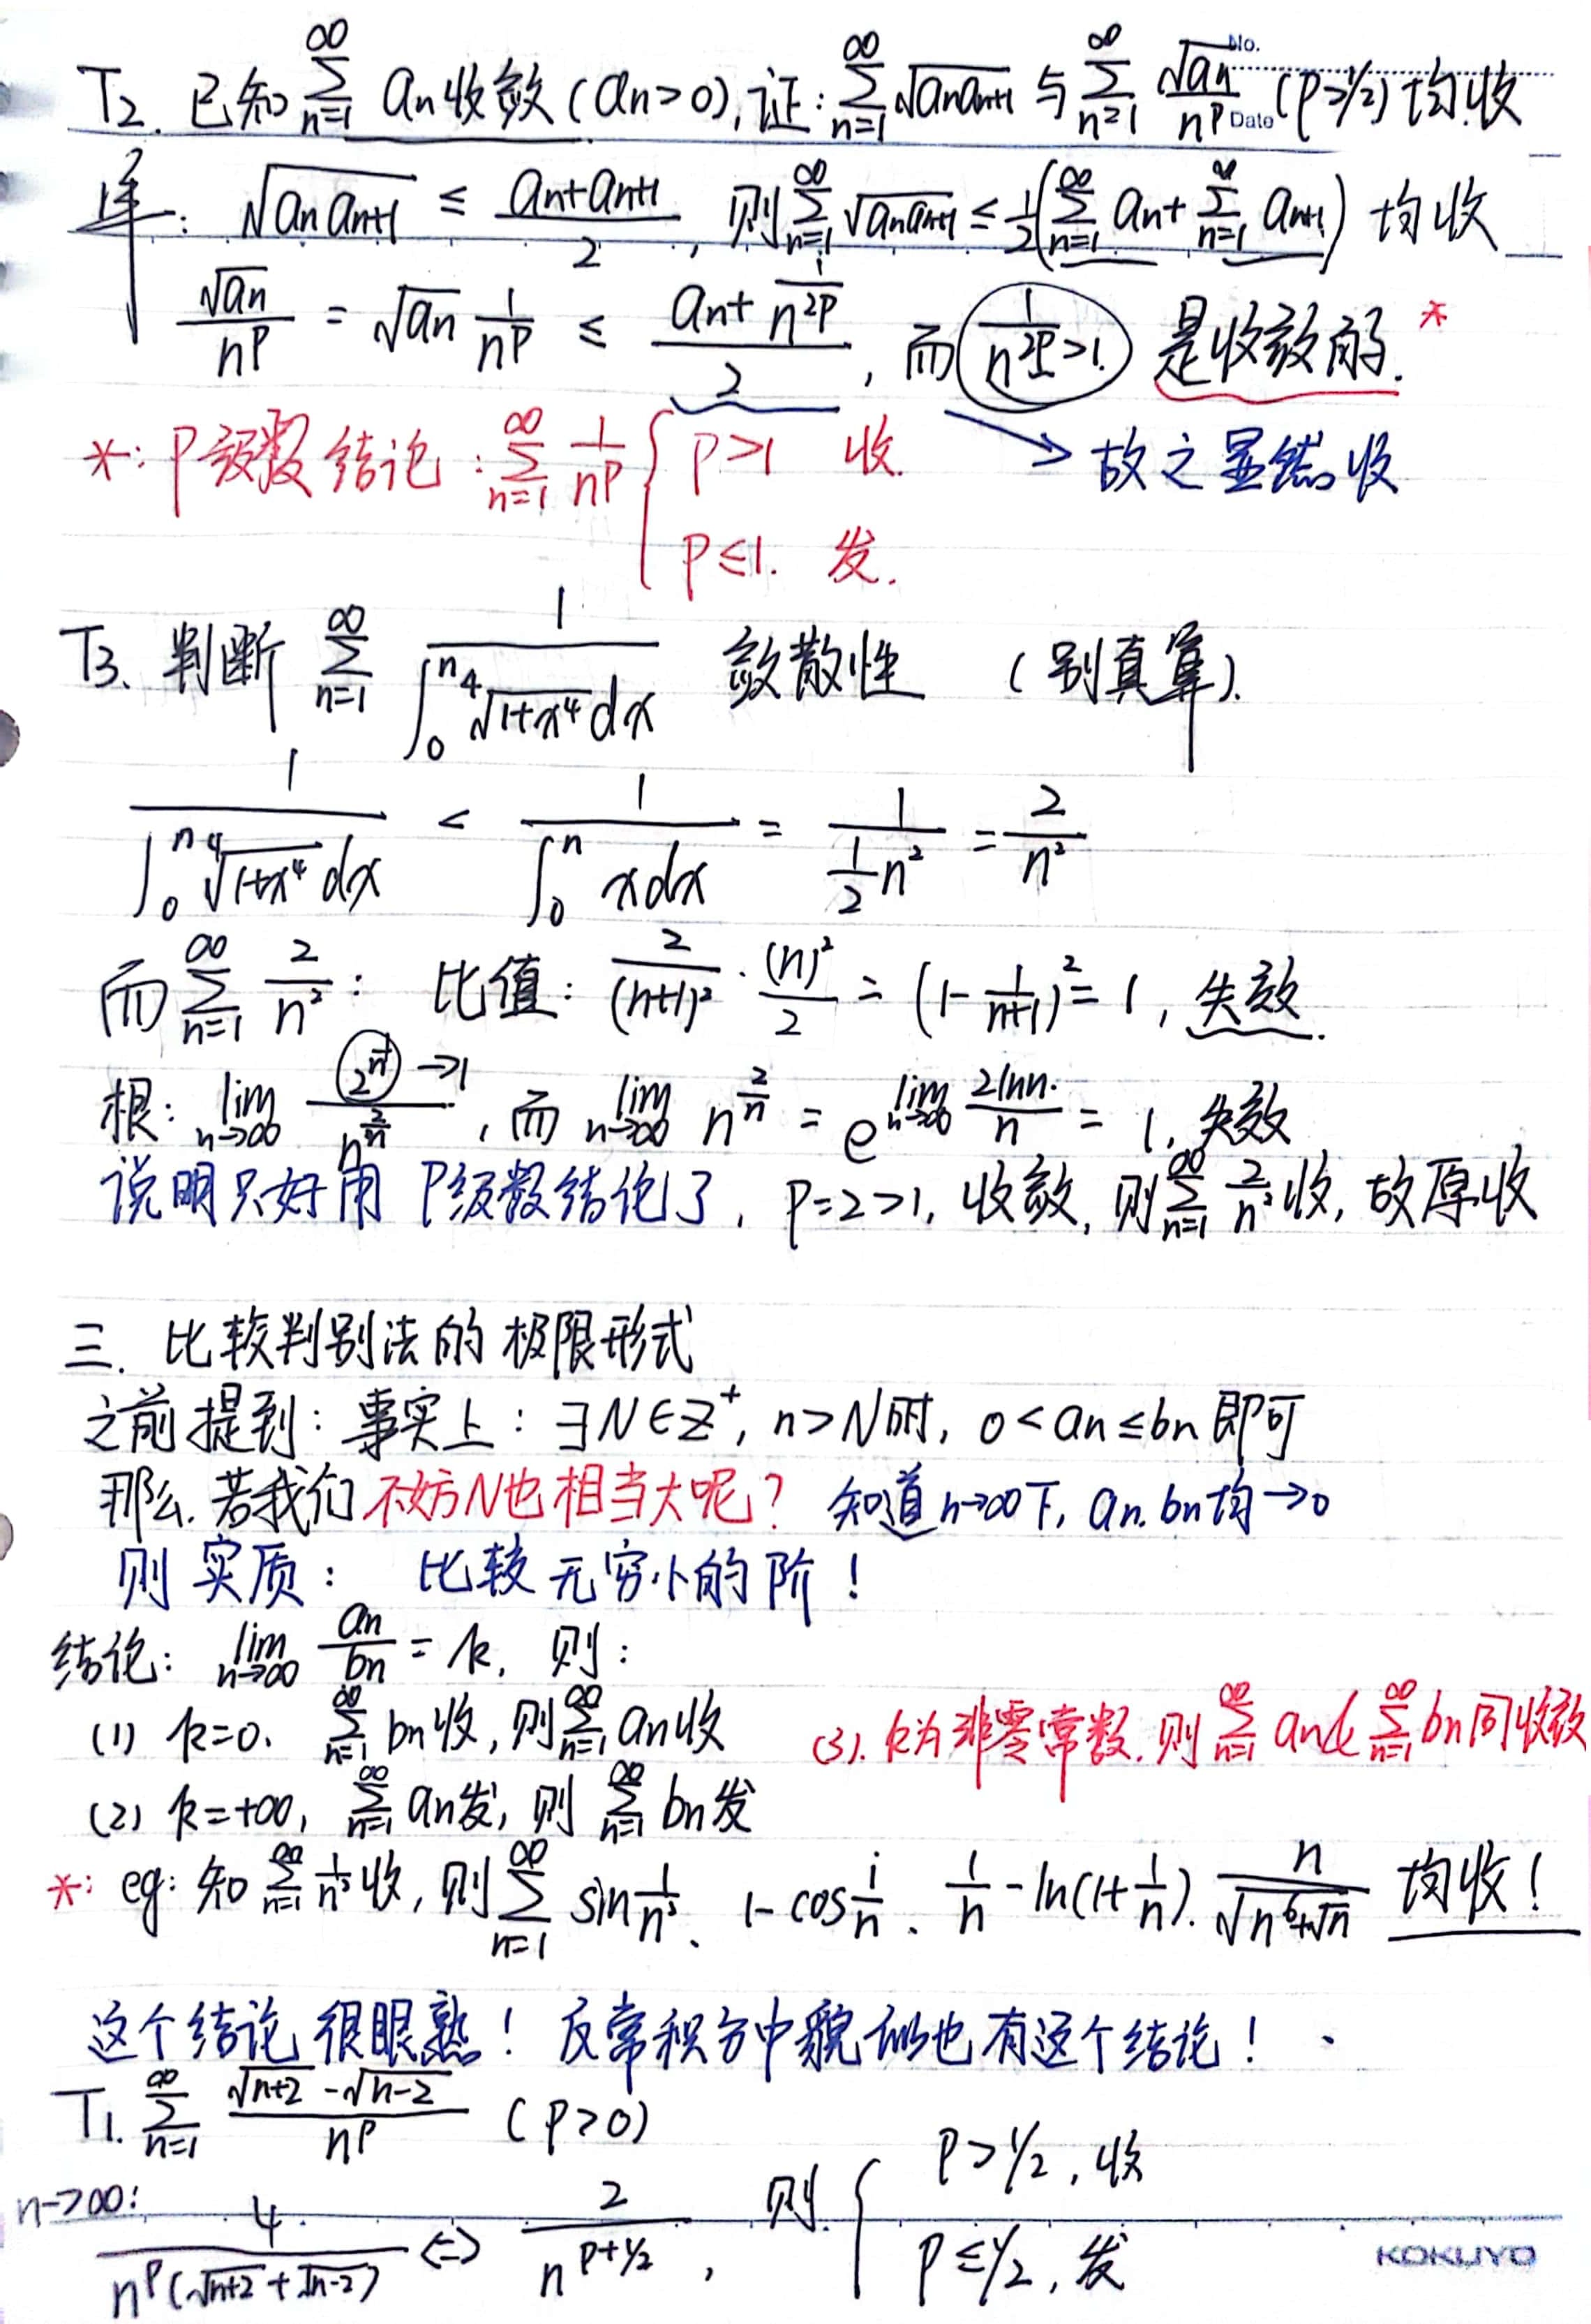 No.
Date
T2. 已知 ∑_{n=1}^{∞} an 收敛 (an>0), 证: ∑_{n=1}^{∞} √(an an+1) 与 ∑_{n=1}^{∞} √an / n^p (p>1/2) 均收
证: √(an an+1) ≤ (an+an+1)/2, 则 ∑_{n=1}^{∞} √(an an+1) ≤ 1/2(∑_{n=1}^{∞} an + ∑_{n=1}^{∞} an+1) 均收
√an / n^p = √an 1/n^p ≤ (an + 1/n^{2p})/2, 而 1/n^{2p>1.} 是收敛的. *
*: P级数结论: ∑_{n=1}^{∞} 1/n^p { P>1 收. → 故之显然收
P≤1. 发.
T3. 判断 ∑_{n=1}^{∞} 1/(∫_0^n ⁴√(1+x⁴) dx) 敛散性 (别真算).
1/(∫_0^n ⁴√(1+x⁴) dx) < 1/(∫_0^n x dx) = 1/(1/2 n²) = 2/n²
而 ∑_{n=1}^{∞} 2/n²: 比值: 2/(n+1)² · (n)²/2 = (1 - 1/(n+1))² = 1, 失效.
根: lim_{n→∞} 2^{1/n} →1 / n^{2/n}, 而 lim_{n→∞} n^{2/n} = e^{lim_{n→∞} 2lnn/n} = 1, 失效
说明只好用 P级数结论了, P=2>1, 收敛, 则 ∑_{n=1}^{∞} 2/n² 收, 故原收
三. 比较判别法的极限形式
之前提到: 事实上: ∃N∈Z⁺, n>N时, 0<an≤bn 即可
那么. 若我们不妨N也相当大呢? 知道n→∞下, an. bn均→0
则 实质: 比较无穷小的阶!
结论: lim_{n→∞} an/bn = k, 则:
(1) k=0. ∑_{n=1}^{∞} bn收, 则 ∑_{n=1}^{∞} an收 (3). k为非零常数. 则 ∑_{n=1}^{∞} an& ∑_{n=1}^{∞} bn同收敛
(2) k=+∞, ∑_{n=1}^{∞} an发, 则 ∑_{n=1}^{∞} bn发
*: eg: 知 ∑_{n=1}^{∞} 收, 则 ∑_{n=1}^{∞} sin 、 1-cos 1/n 、 1/n - ln(1+1/n). n/√(n⁶+√n) 均收!
这个结论很眼熟! 反常积分中貌似也有这个结论!
T1. ∑_{n=1}^{∞} (√(n+2) - √(n-2))/n^p (P>0)
n→∞: 4/(n^p(√(n+2)+√(n-2))) <=> 2/n^{p+1/2}, 则 { P>1/2, 收
P≤1/2, 发
KOKUYO